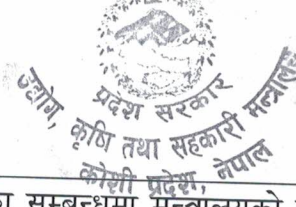 प्रदेश सरकार
उद्योग, कृषि तथा सहकारी मन्त्रालय
कोशी प्रदेश, नेपाल
सम्बन्धमा मन्त्रालयको